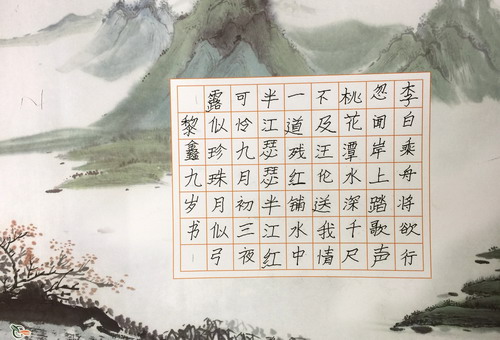 李白乘舟将欲行
忽闻岸上踏歌声
桃花潭水深千尺
不及汪伦送我情
一道残红铺水中
半江瑟瑟半江红
可怜九月初三夜
露似珍珠月似弓
黎鑫九岁书